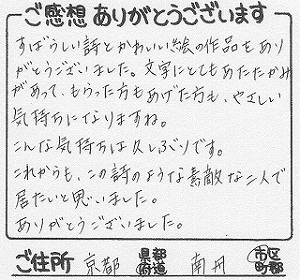 ご感想ありがとうございます
すばらしい詩とかわいい絵の作品をあり
がとうございました。文字にとてもあたたかみ
があって、もらった方もあげた方も、やさしい
気持ちになりますね。
こんな気持ちは久しぶりです。
これからも、この詩のような素敵な二人で
居たいと思いました。
ありがとうございました。
ご住所 京都 県都府道 南丹 市区町郡